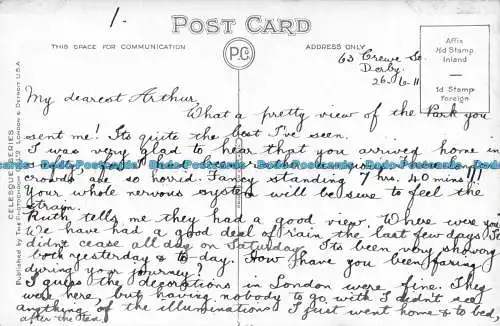 1.
POST CARD
THIS SPACE FOR COMMUNICATION
P.C.
ADDRESS ONLY
Affix
½d Stamp
Inland
1d Stamp
Foreign
63 Crewe St.
Derby.
26/6/11
My dearest Arthur,
What a pretty view of the Park you
sent me! Its quite the best I've seen.
I was very glad to hear that you arrived home in
safety
crowds are so horrid. Fancy standing 7 hrs. 40 mins!!!
Your whole nervous system will be sure to feel the
strain.
Ruth tells me they had a good view. Where were you?
We have had a good deal of rain the last few days. It
didn't cease all day on Saturday. Its been very showery
both yesterday & to-day. How have you been faring
during your journey?
I guess the decorations in London were fine. They
were here, but having nobody to go with I didn't see
anything of the illuminations I just went home & to bed
after the tea.
CELESQUE SERIES
Published by The Photochrom Co. Ltd. London & Detroit U.S.A.